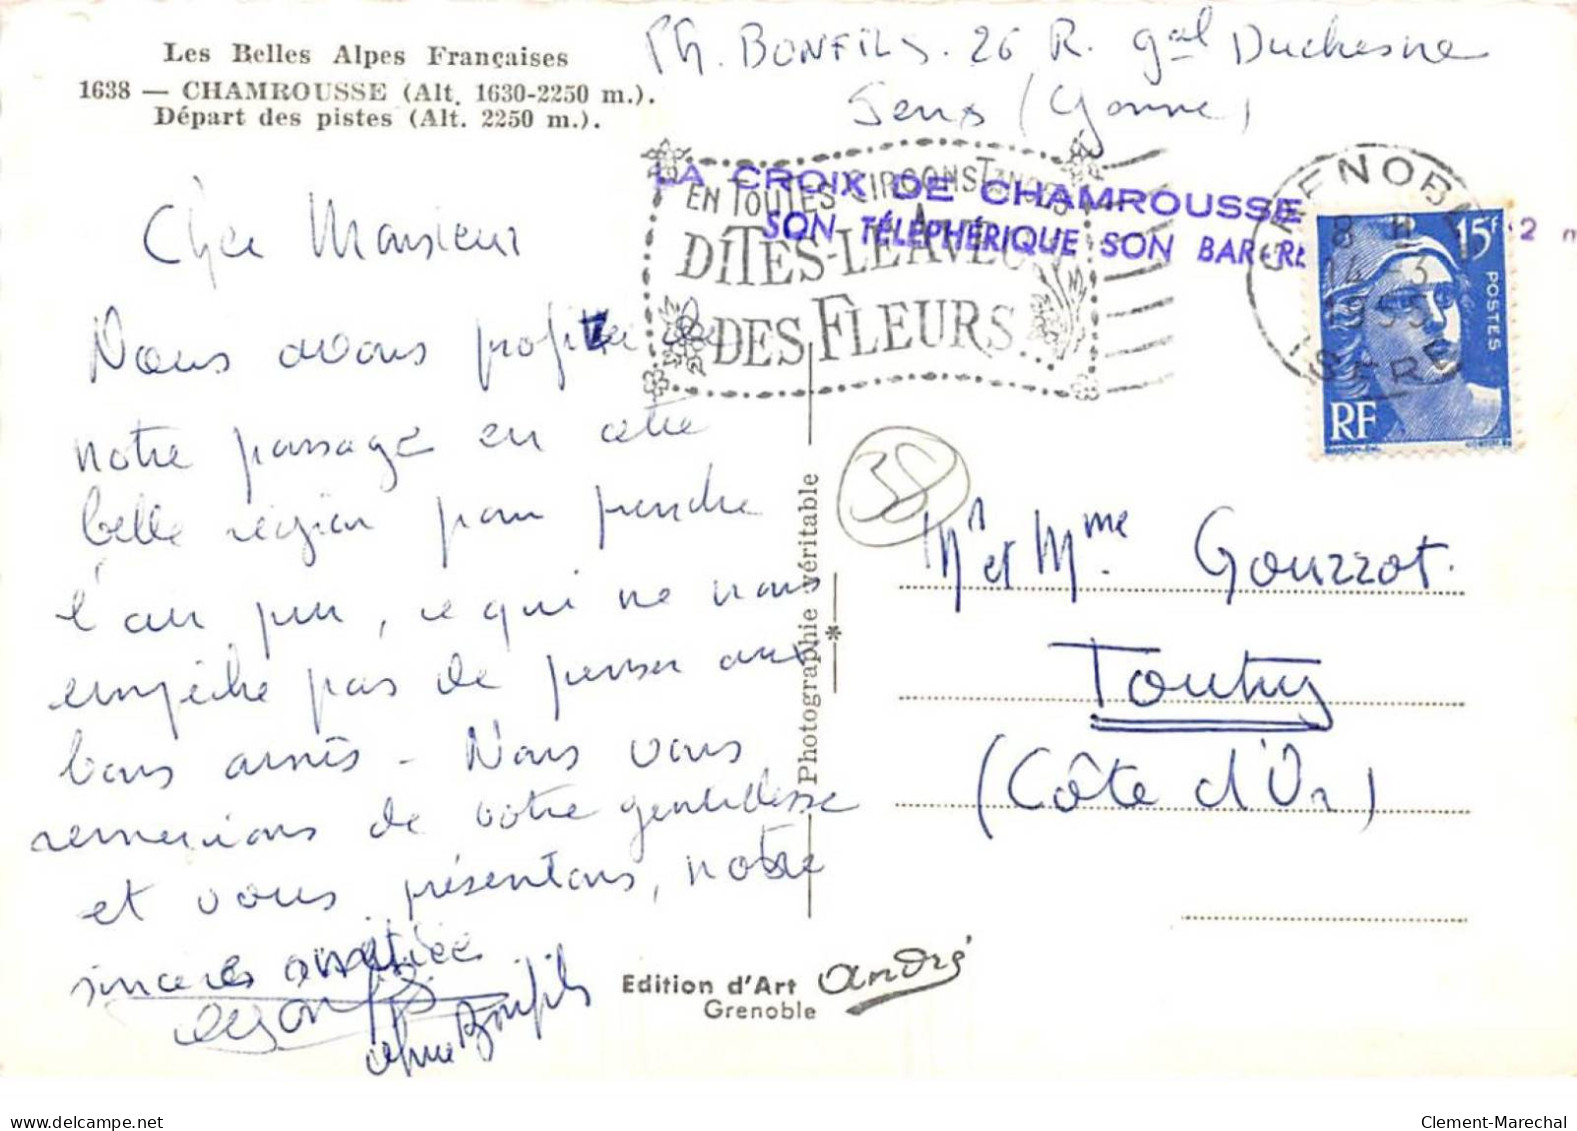 Les Belles Alpes Françaises
1638 — CHAMROUSSE (Alt. 1630-2250 m.).
Départ des pistes (Alt. 2250 m.).
Ph. BONFILS. 26 R. Gal Duchesne
Sens (Yonne)
LA CROIX DE CHAMROUSSE
SON TÉLÉPHÉRIQUE SON BAR-RE
EN TOUTES CIRCONSTANCES
DITES-LE AVEC
DES FLEURS
GRENOBLE
8 H
14 -3
1955
ISERE
15F
POSTES
RF
Cher Monsieur
Nous avons profité de
notre passage en cette
belle région pour prendre
l'air pur, ce qui ne nous
empêche pas de penser aux
bons amis - Nous vous
remercions de votre gentillesse
et vous présentons, notre
sincères amitiés
Bonfils
38
Mr et Mme Gouzzot.
Touthy
(Côte d'Or)
Photographie véritable
*
Edition d'Art André
Grenoble
delcampe.net
Clement-Marechal